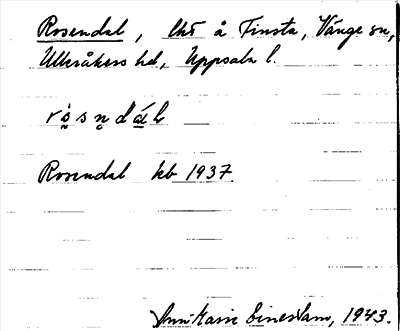 Rosendal, lht å Finsta, Vänge sn,
Ulleråkers hd, Uppsala l.
rọ́sṇdál
Rosendal kb 1937.
Ann-Marie 1943.